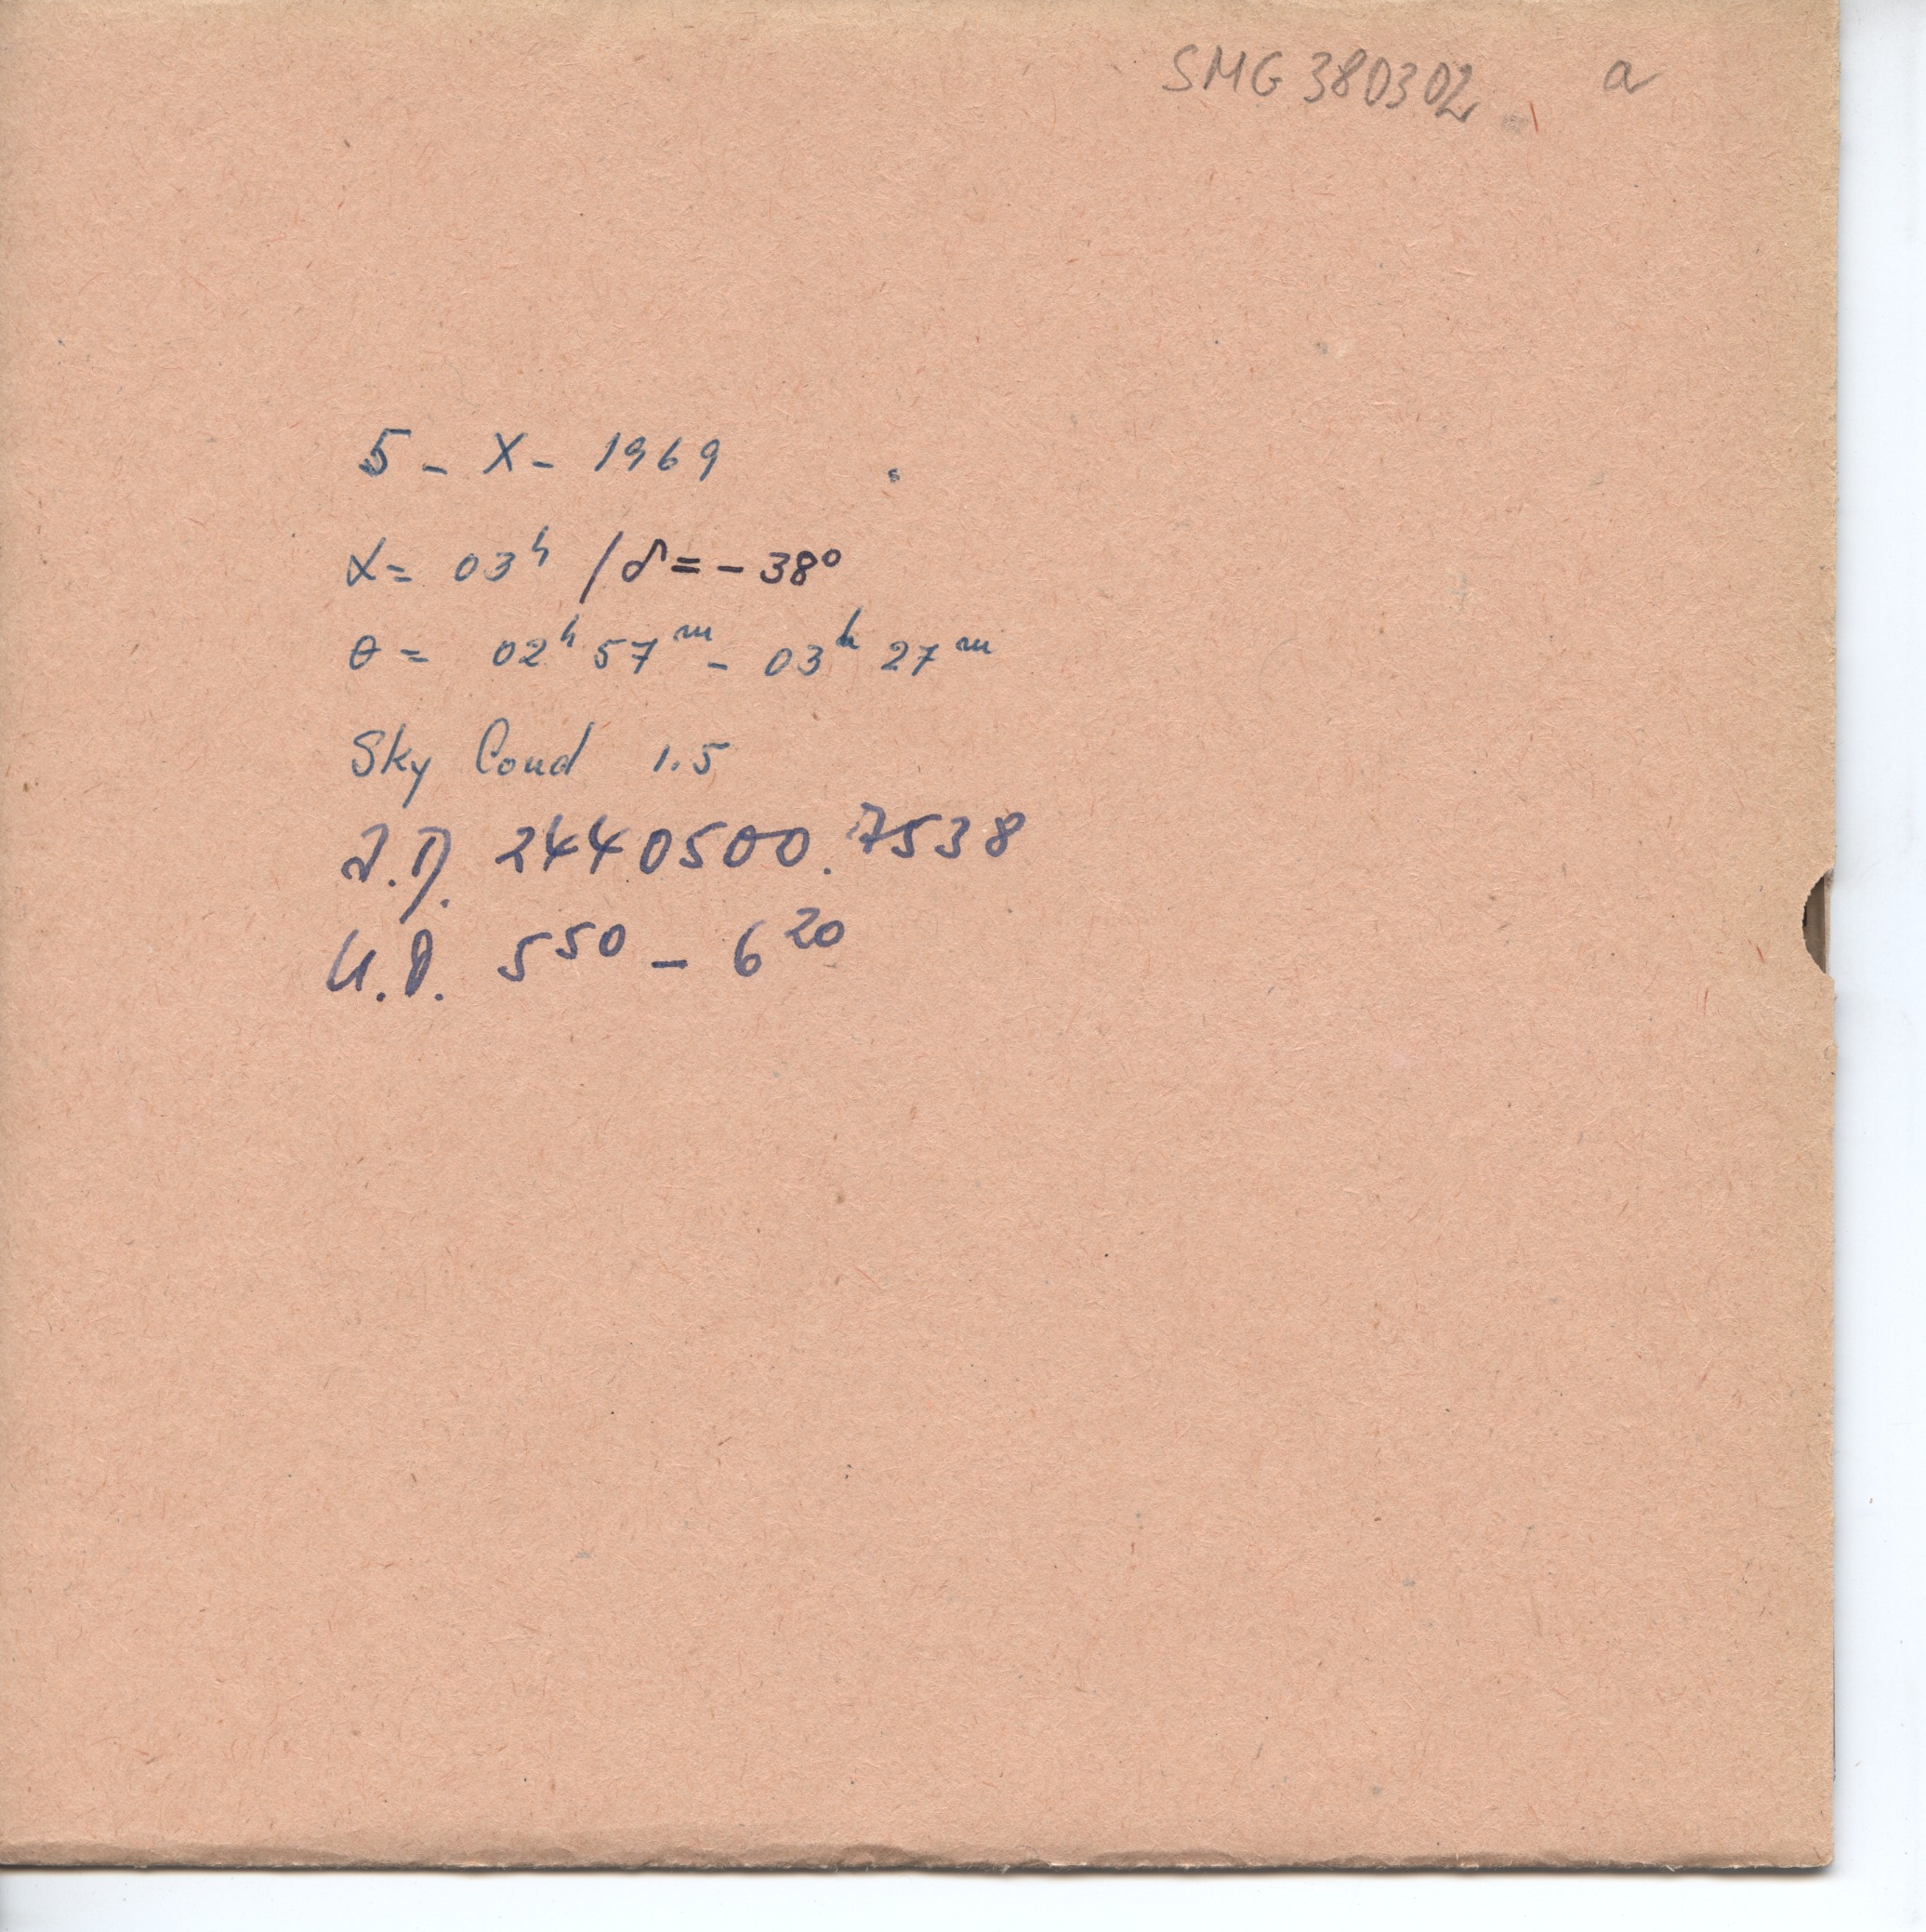 SMG 380302 a
5 - X - 1969
α = 03ʰ / δ = - 38°
θ = 02ʰ 57ᵐ - 03ʰ 27ᵐ
Sky Cond 1.5
J.D. 2440500.7538
U.T. 5⁵⁰ - 6²⁰